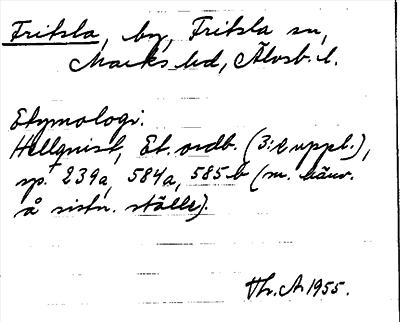 Fritsla, by, Fritsla sn,
Marks hd, Älvsb. l.
Etymologi:
Hellquist, Et. ordb. (3:e uppl.),
sp. 239a, 584a, 585b (m. hänv.
å sistn. ställe).
Th. A. 1955.